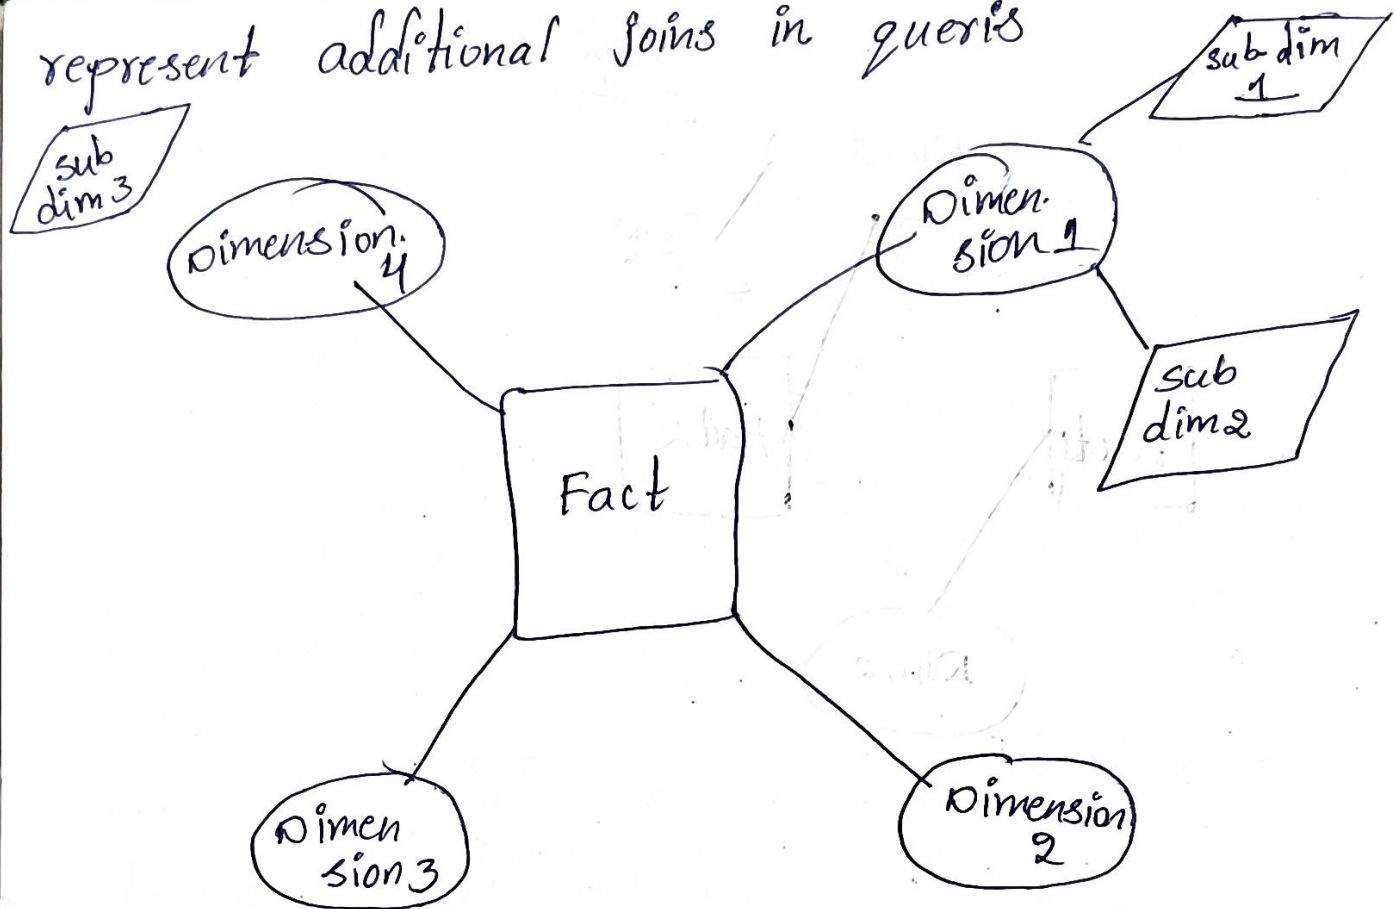 represent additional joins in queris
sub dim
1
sub
dim 3
Dimen-
sion 1
Dimension.
4
sub
dim 2
Fact
Dimension
2
Dimen
sion 3